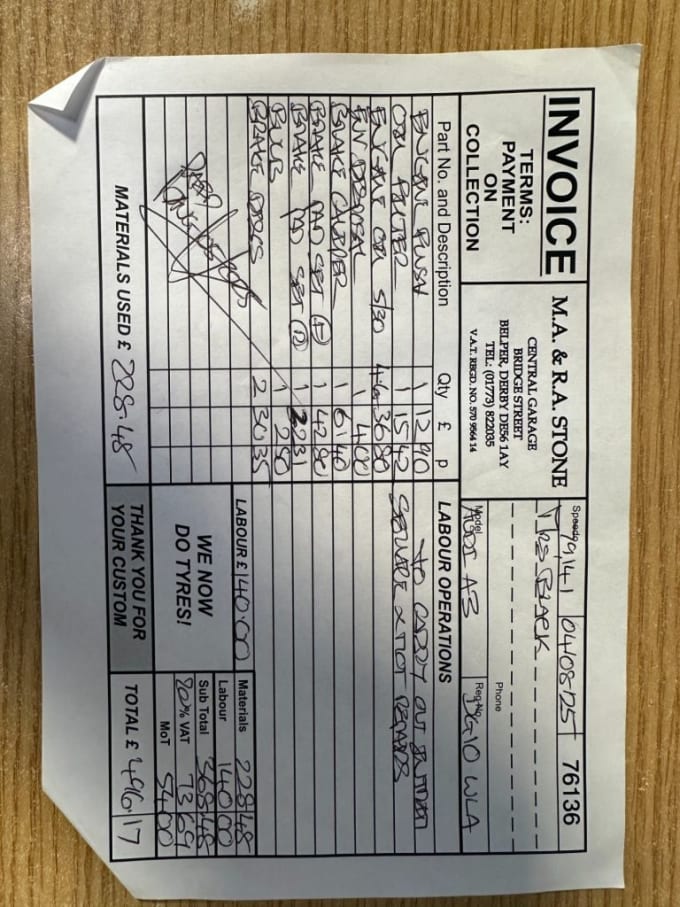 INVOICE
TERMS:
PAYMENT
ON
COLLECTION
M.A. & R.A. STONE
CENTRAL GARAGE
BRIDGE STREET
BELPER, DERBY DE56 1AY
TEL: (01773) 822035
V.A.T. REGD. NO. 570 9566 14
Speedo 79141 04/08/25 76136
Mrs BLACK
Phone
Model AUDI A3 Reg. No. WLA
Part No. and Description Qty £ p LABOUR OPERATIONS
ENGINE FLUSH 1 12 90 TO CARRY OUT INTERIM
OIL FILTER 1 15 42 SERVICE & MOT REPAIRS
ENGINE OIL 5/30 4.6 36 80
ENV DISPOSAL 1 4 00
BRAKE CALIPER 1 61 40
BRAKE PAD SET 1 42 80
BRAKE PAD SET 1 22 31
BULB 1 2 50
BRAKE DISCS 2 30 35
MATERIALS USED £ 228.48
LABOUR £ 140.00
WE NOW
DO TYRES!
THANK YOU FOR
YOUR CUSTOM
Materials 228 48
Labour 140 00
Sub Total 368 48
20% VAT 73 69
MoT 54 00
TOTAL £ 496 17